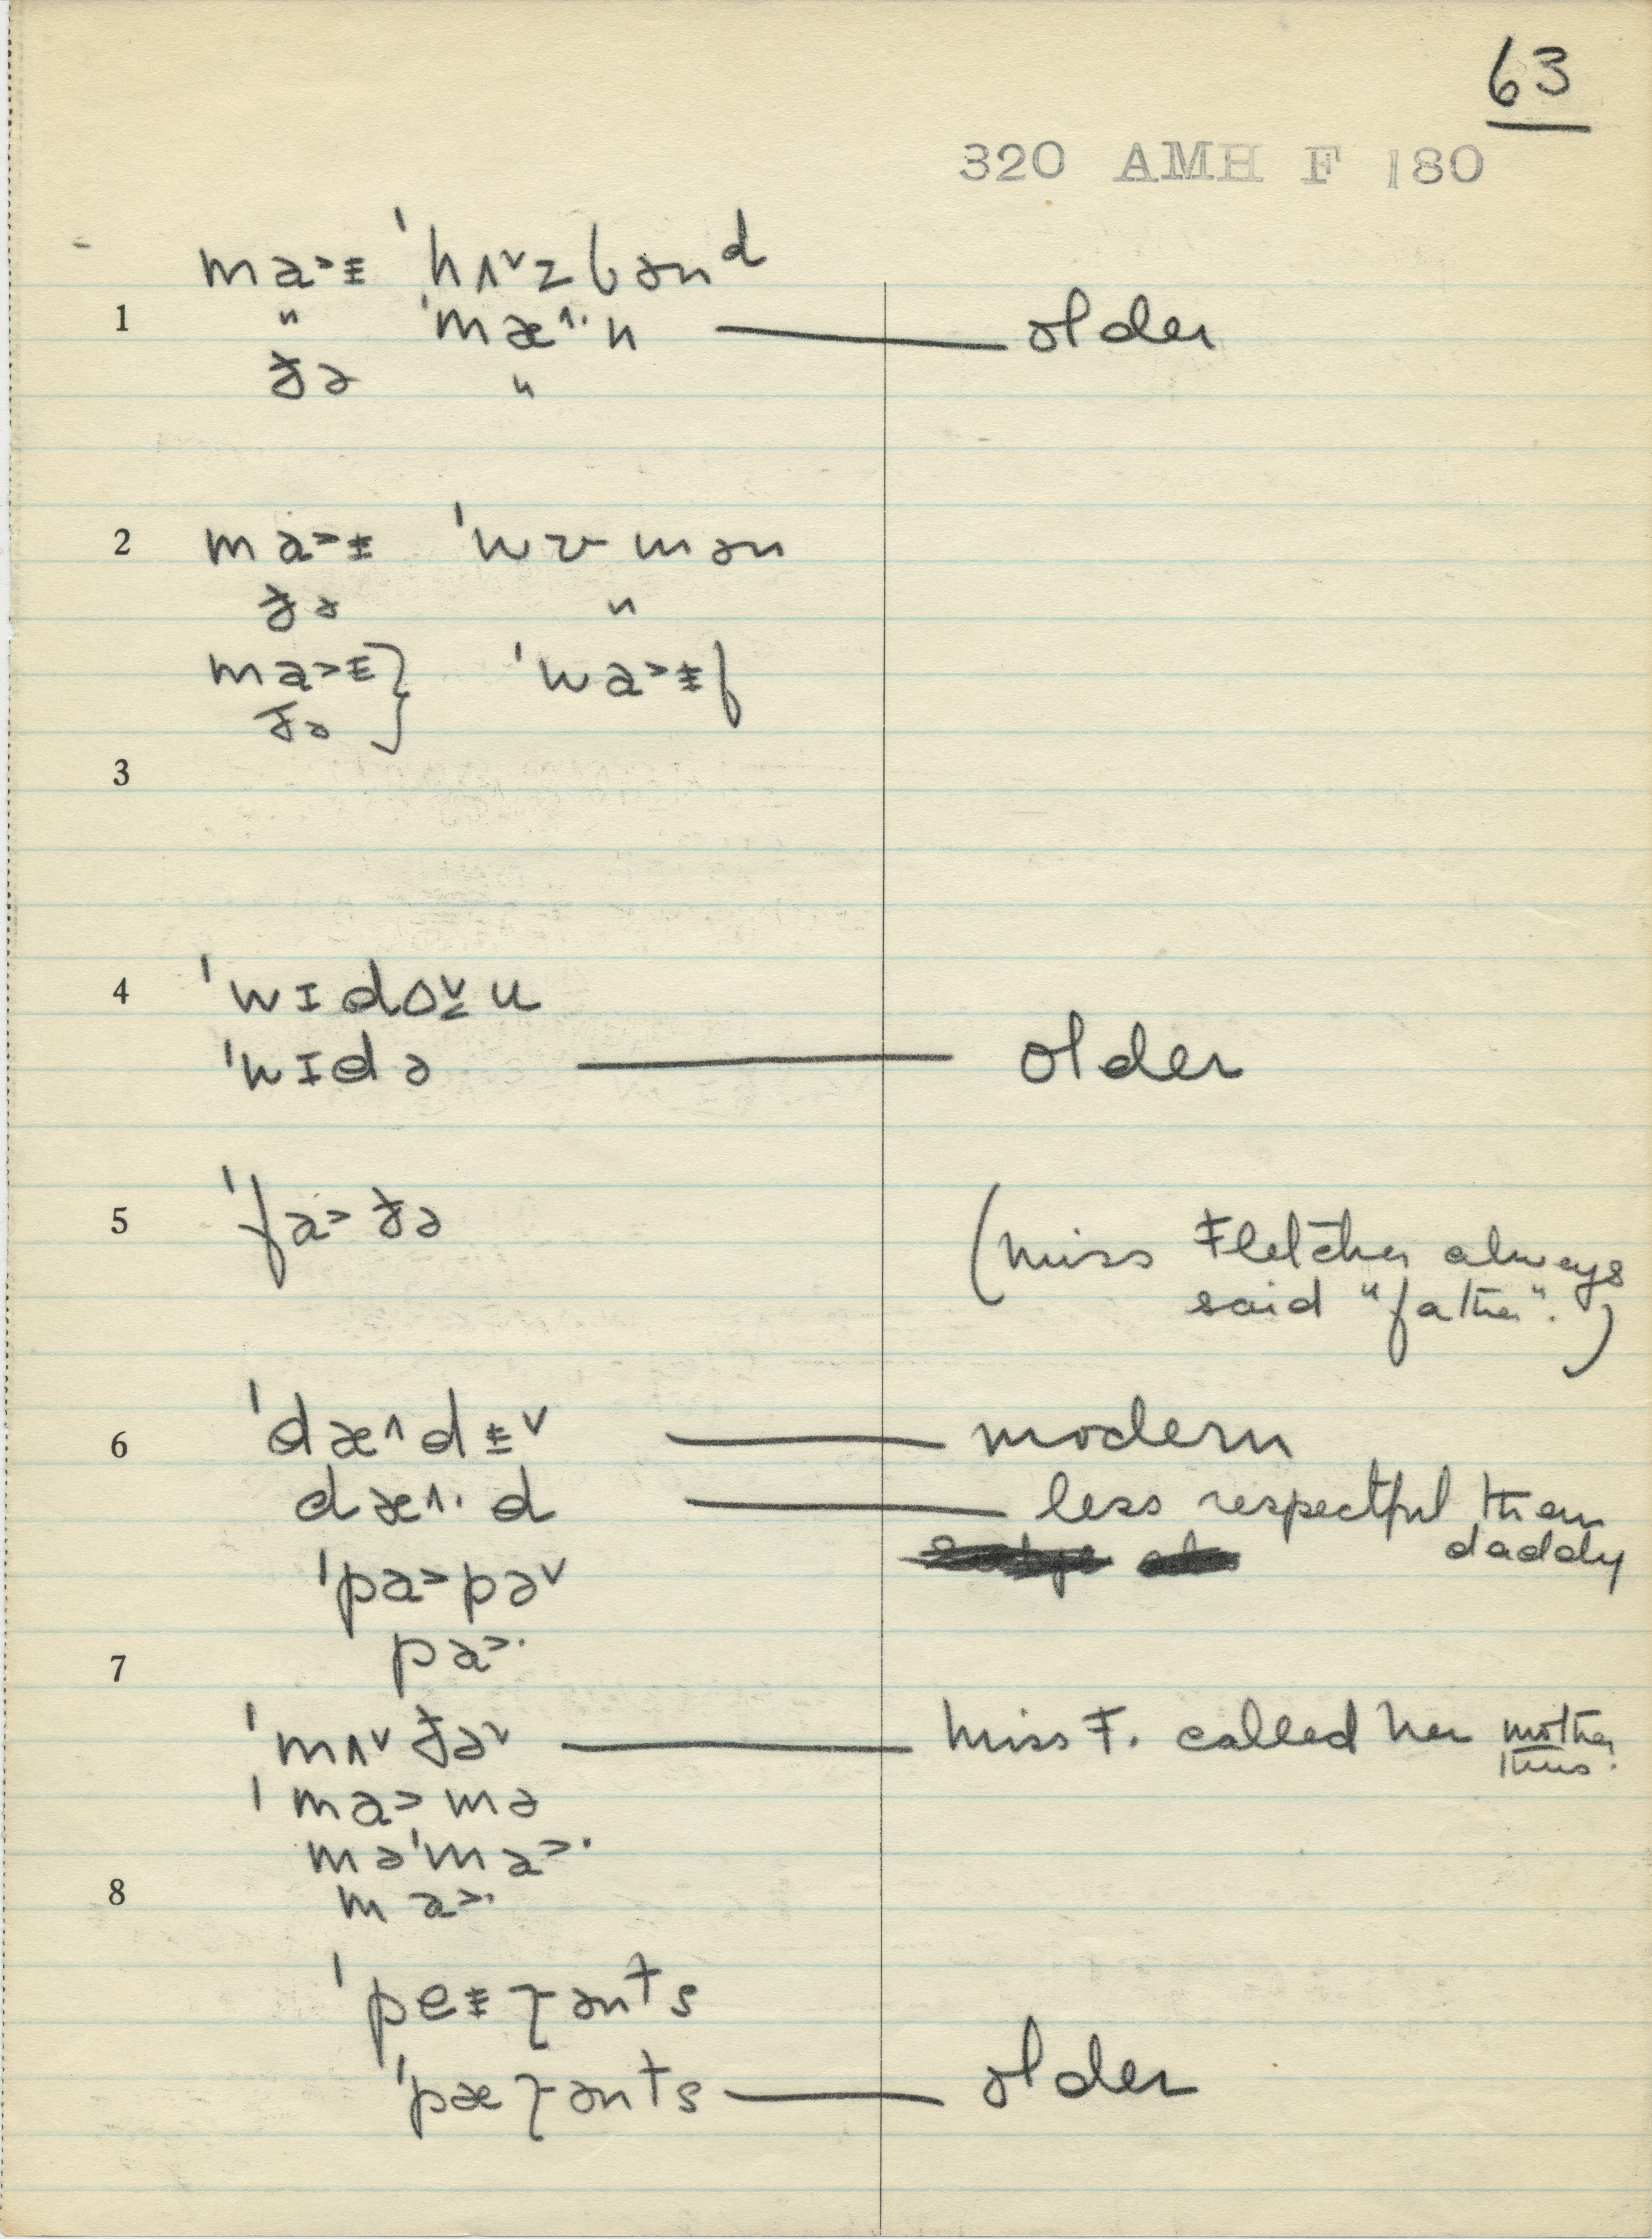 63
320 AMH F 180
ma˃ᵻ ˈhʌ˅zbənᵈ
1 " ˈmæ˄·n — older
ðə "
2 ma˃ᵻ ˈwʊmən
ðə "
ma˃ᵻ } ˈwa˃ᵻf
ðə
3
4 ˈwɪdo˅u
ˈwɪdə — older
5 ˈfa˃ðə (Miss Fletcher always
said "father".)
6 ˈdæ˄dᵻ˅ — modern
dæ˄·d — less respectful than
daddy
ˈpa˃pə˅
pa˃·
7
ˈmʌ˅ðə˅ — Miss F. called her mother
thus.
ˈma˃mə
məˈma˃·
8 ma˃·
ˈpeᵻɼənᵗs
ˈpæɼənᵗs — older